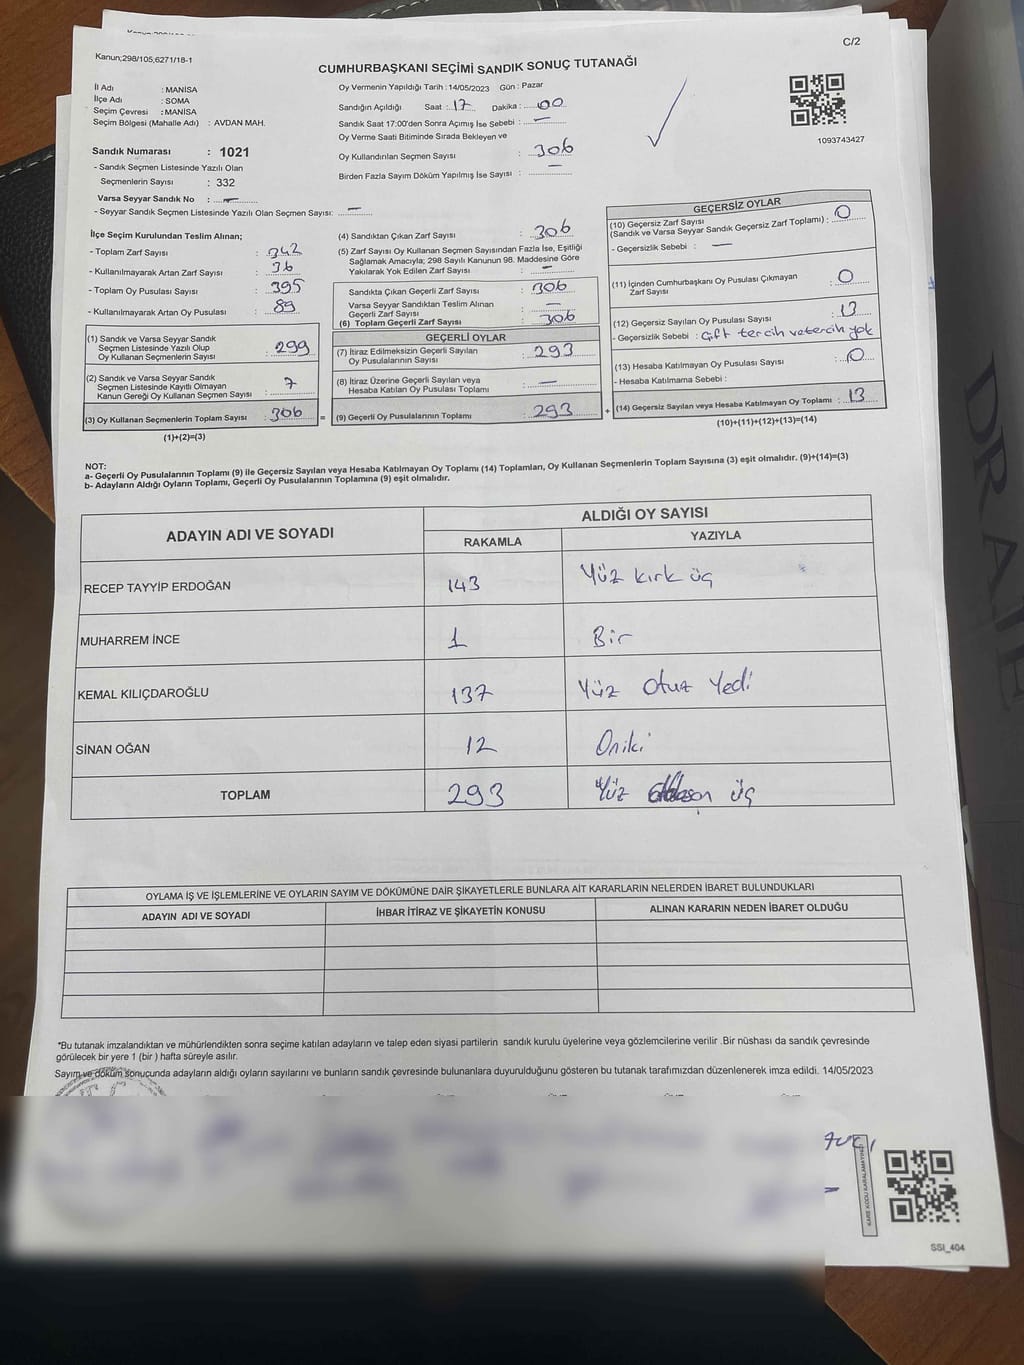 C/2
Kanun;298/105,6271/18-1
CUMHURBAŞKANI SEÇİMİ SANDIK SONUÇ TUTANAĞI
İl Adı : MANİSA
İlçe Adı : SOMA
Seçim Çevresi : MANİSA
Seçim Bölgesi (Mahalle Adı) : AVDAN MAH.
Sandık Numarası : 1021
- Sandık Seçmen Listesinde Yazılı Olan
Seçmenlerin Sayısı : 332
Varsa Seyyar Sandık No : —
- Seyyar Sandık Seçmen Listesinde Yazılı Olan Seçmen Sayısı: —
Oy Vermenin Yapıldığı Tarih : 14/05/2023 Gün : Pazar
Sandığın Açıldığı Saat : 17 Dakika : 00
Sandık Saat 17:00'den Sonra Açımış İse Sebebi : —
Oy Verme Saati Bitiminde Sırada Bekleyen ve
Oy Kullandırılan Seçmen Sayısı : 306
Birden Fazla Sayım Döküm Yapılmış İse Sayısı : —
1093743427
İlçe Seçim Kurulundan Teslim Alınan;
- Toplam Zarf Sayısı : 342
- Kullanılmayarak Artan Zarf Sayısı : 36
- Toplam Oy Pusulası Sayısı : 395
- Kullanılmayarak Artan Oy Pusulası : 89
(1) Sandık ve Varsa Seyyar Sandık
Seçmen Listesinde Yazılı Olup
Oy Kullanan Seçmenlerin Sayısı : 299
(2) Sandık ve Varsa Seyyar Sandık
Seçmen Listesinde Kayıtlı Olmayan
Kanun Gereği Oy Kullanan Seçmen Sayısı : 7
(3) Oy Kullanan Seçmenlerin Toplam Sayısı : 306 =
(1)+(2)=(3)
(4) Sandıktan Çıkan Zarf Sayısı : 306
(5) Zarf Sayısı Oy Kullanan Seçmen Sayısından Fazla İse, Eşitliği
Sağlamak Amacıyla; 298 Sayılı Kanunun 98. Maddesine Göre
Yakılarak Yok Edilen Zarf Sayısı : —
Sandıkta Çıkan Geçerli Zarf Sayısı : 306
Varsa Seyyar Sandıktan Teslim Alınan
Geçerli Zarf Sayısı : —
(6) Toplam Geçerli Zarf Sayısı : 306
GEÇERLİ OYLAR
(7) İtiraz Edilmeksizin Geçerli Sayılan
Oy Pusulalarının Sayısı : 293
(8) İtiraz Üzerine Geçerli Sayılan veya
Hesaba Katılan Oy Pusulaları Toplamı : —
(9) Geçerli Oy Pusulalarının Toplamı : 293 +
GEÇERSİZ OYLAR
(10) Geçersiz Zarf Sayısı
(Sandık ve Varsa Seyyar Sandık Geçersiz Zarf Toplamı) : 0
- Geçersizlik Sebebi : —
(11) İçinden Cumhurbaşkanı Oy Pusulası Çıkmayan
Zarf Sayısı : 0
(12) Geçersiz Sayılan Oy Pusulası Sayısı : 13
- Geçersizlik Sebebi : Çift tercih ve tercih yok
(13) Hesaba Katılmayan Oy Pusulası Sayısı : 0
- Hesaba Katılmama Sebebi :
(14) Geçersiz Sayılan veya Hesaba Katılmayan Oy Toplamı : 13
(10)+(11)+(12)+(13)=(14)
NOT:
a- Geçerli Oy Pusulalarının Toplamı (9) ile Geçersiz Sayılan veya Hesaba Katılmayan Oy Toplamı (14) Toplamları, Oy Kullanan Seçmenlerin Toplam Sayısına (3) eşit olmalıdır. (9)+(14)=(3)
b- Adayların Aldığı Oyların Toplamı, Geçerli Oy Pusulalarının Toplamına (9) eşit olmalıdır.
ADAYIN ADI VE SOYADI
ALDIĞI OY SAYISI
RAKAMLA YAZIYLA
RECEP TAYYİP ERDOĞAN 143 Yüz kırk üç
MUHARREM İNCE 1 Bir
KEMAL KILIÇDAROĞLU 137 Yüz Otuz Yedi
SİNAN OĞAN 12 Oniki
TOPLAM 293 Yüz üç
OYLAMA İŞ VE İŞLEMLERİNE VE OYLARIN SAYIM VE DÖKÜMÜNE DAİR ŞİKAYETLERLE BUNLARA AİT KARARLARIN NELERDEN İBARET BULUNDUKLARI
ADAYIN ADI VE SOYADI İHBAR İTİRAZ VE ŞİKAYETİN KONUSU ALINAN KARARIN NEDEN İBARET OLDUĞU
*Bu tutanak imzalandıktan ve mühürlendikten sonra seçime katılan adayların ve talep eden siyasi partilerin sandık kurulu üyelerine veya gözlemcilerine verilir .Bir nüshası da sandık çevresinde
görülecek bir yere 1 (bir ) hafta süreyle asılır.
Sayım ve döküm sonucunda adayların aldığı oyların sayılarını ve bunların sandık çevresinde bulunanlara duyurulduğunu gösteren bu tutanak tarafımızdan düzenlenerek imza edildi. 14/05/2023
KARE KODU KARALAMAYINIZ
SSI_404